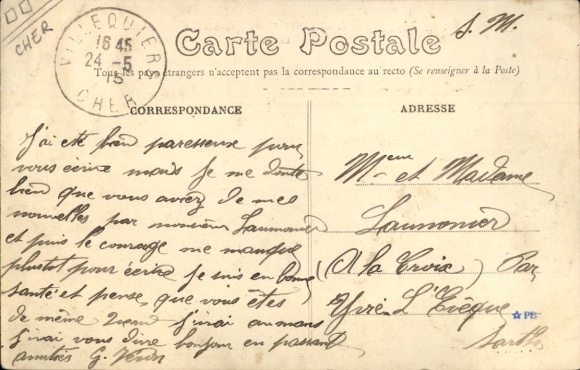 CHER
VILLEQUIERS
16 45
24 - 5
15
CHER
S. M.
Carte Postale
Tous les pays étrangers n'acceptent pas la correspondance au recto (Se renseigner à la Poste)
CORRESPONDANCE
J'ai eté bien paresseuse pour
vous écrire mais je me doute
bien que vous aviez de mes
nouvelles par monsieur Launonier
et puis le courage me manque
plustot pour écrire je suis en bonne
santé et pense que vous êtes
de même Quand j'irai au mans
j'irai vous dire bonjour en passant
amitiés G.
ADRESSE
Mr et Madame
Launonier
(A la Croix) Par
Yvré-L'Evêque
Sarthe
PB